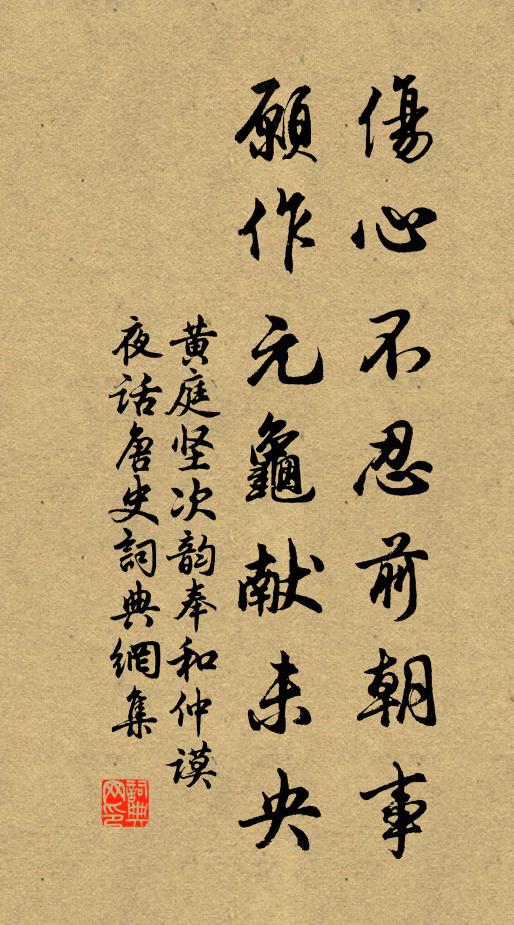 傷心不忍前朝事
願作元龜献未央
黄庭坚次韵奉和仲谟
夜话唐史詞典網集
詞典
网印